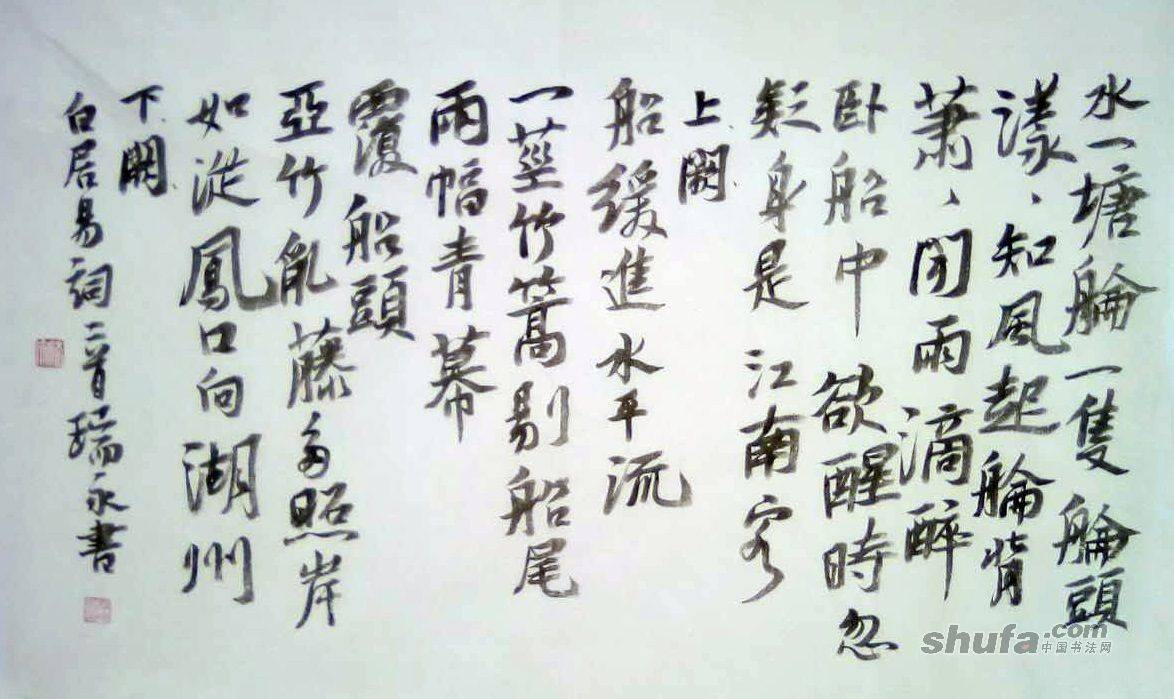 水一塘䑳一隻䑳頭
漾、知風起䑳背
蕭、聞雨滴醉
卧船中欲醒時忽
疑身是江南客
上闕
船緩進水平流
一莖竹篙剔船尾
兩幅青幕
覆船頭
亞竹亂藤多照岸
如從鳳口向湖州
下闕
白居易詞二首瑞永書
shufa.com
中国书法网